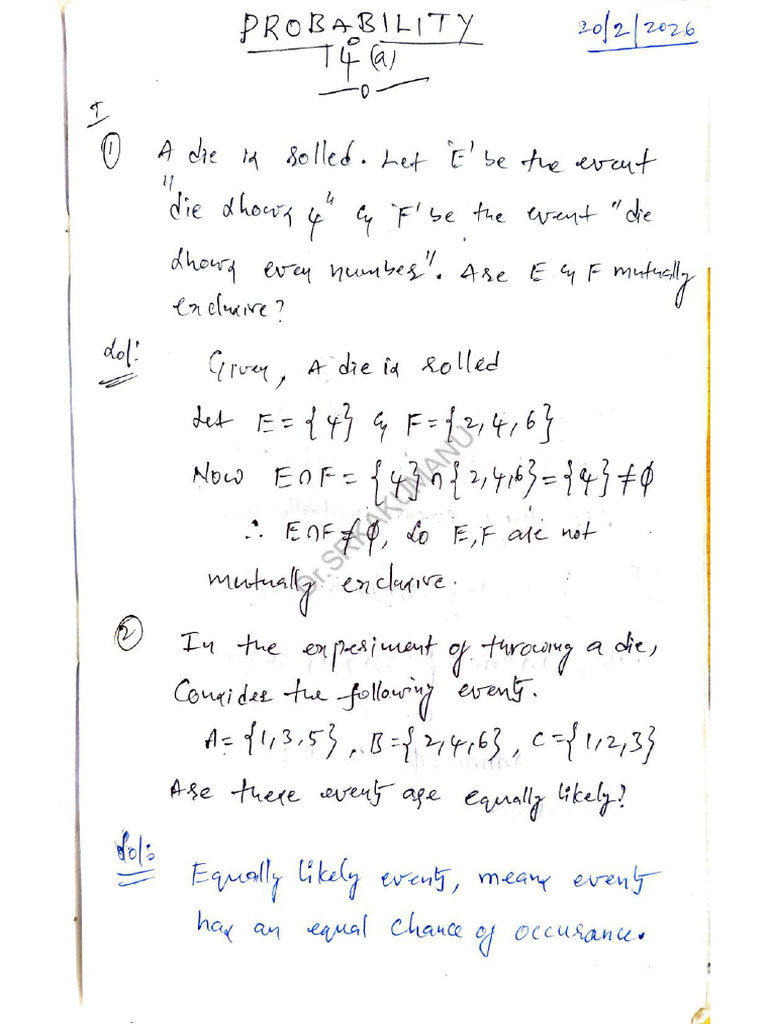 PROBABILITY
20/2/2026
14(a)
I
① A die is rolled. Let 'E' be the event
"die shows 4" & 'F' be the event "die
shows even number". Are E & F mutually
exclusive?
Sol:
Given, A die is rolled
Let E = {4} & F = {2, 4, 6}
Now E∩F = {4} ∩ {2, 4, 6} = {4} ≠ ϕ
∴ E∩F ≠ ϕ, So E, F are not
mutually exclusive.
② In the experiment of throwing a die,
Consider the following events.
A = {1, 3, 5}, B = {2, 4, 6}, C = {1, 2, 3}
Are these events are equally likely?
Sol:
Equally likely events, means events
has an equal chance of occurance.
Dr.SRIKAKUMANU